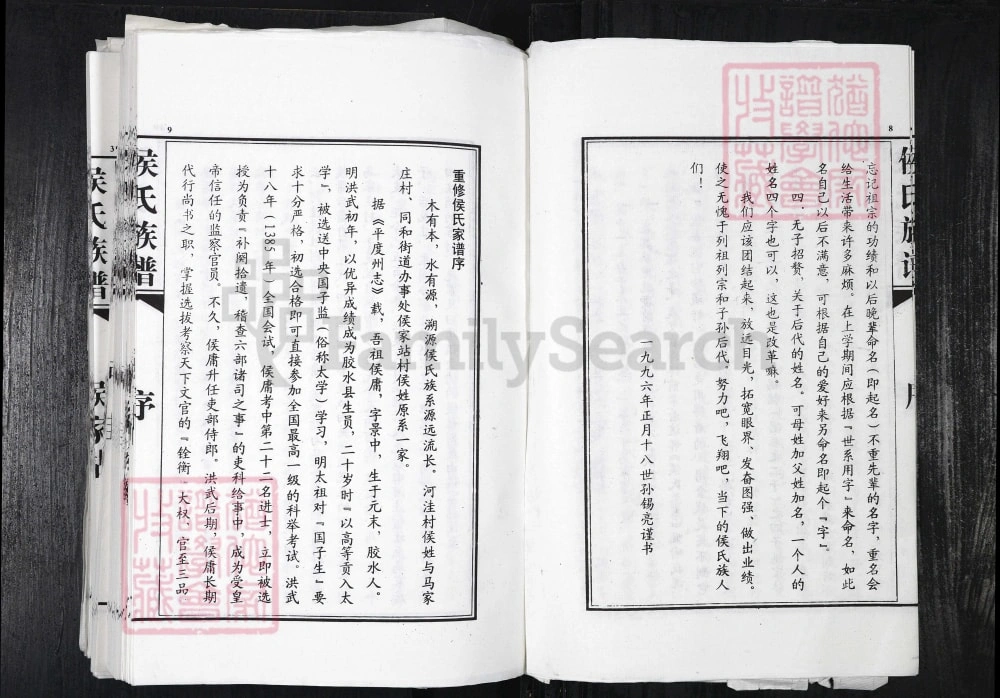 8
侯氏族谱
序
忘记祖宗の功绩和以后晚辈命名(即起名)不重先辈的名字,重名会
给生活带来许多麻烦。在上学期间应根据“世系用字”来命名,如此
名自己以后不满意,可根据自己的爱好来另命名即起个“字”。
四、无子招赘,关于后代的姓名。可母姓加父姓加名,一个人的
姓名四个字也可以,这也是改革嘛。
我们应该团结起来,放远目光,拓宽眼界、发奋图强、做出业绩。
使之无愧于列祖列宗和子孙后代。努力吧,飞翔吧,当下的侯氏族人
们!
一九九六年正月十八世孙锡亮谨书
9
侯氏族谱
序
重修侯氏家谱序
木有本,水有源,溯源侯氏族系源远流长。河洼村侯姓与马家
庄村、同和街道办事处侯家站村侯姓原系一家。
据《平度州志》载,吾祖侯庸,字景中,生于元末,胶水人。
明洪武初年,以优异成绩成为胶水县生员,二十岁时“以高等贡入太
学”,被选送中央国子监(俗称太学)学习,明太祖对“国子生”要
求十分严格,初选合格即可直接参加全国最高一级的科举考试。洪武
十八年(1385年)全国会试,侯庸考中第二十二名进士,立即被选
授为负责“补阙拾遗,稽查六部诸司之事”的吏科给事中,成为受皇
帝信任的监察官员。不久,侯庸升任吏部侍郎。洪武后期,侯庸长期
代行尚书之职,掌握选拔考察天下文官的“铨衡”大权,官至三品
侯氏族谱
FamilySearch